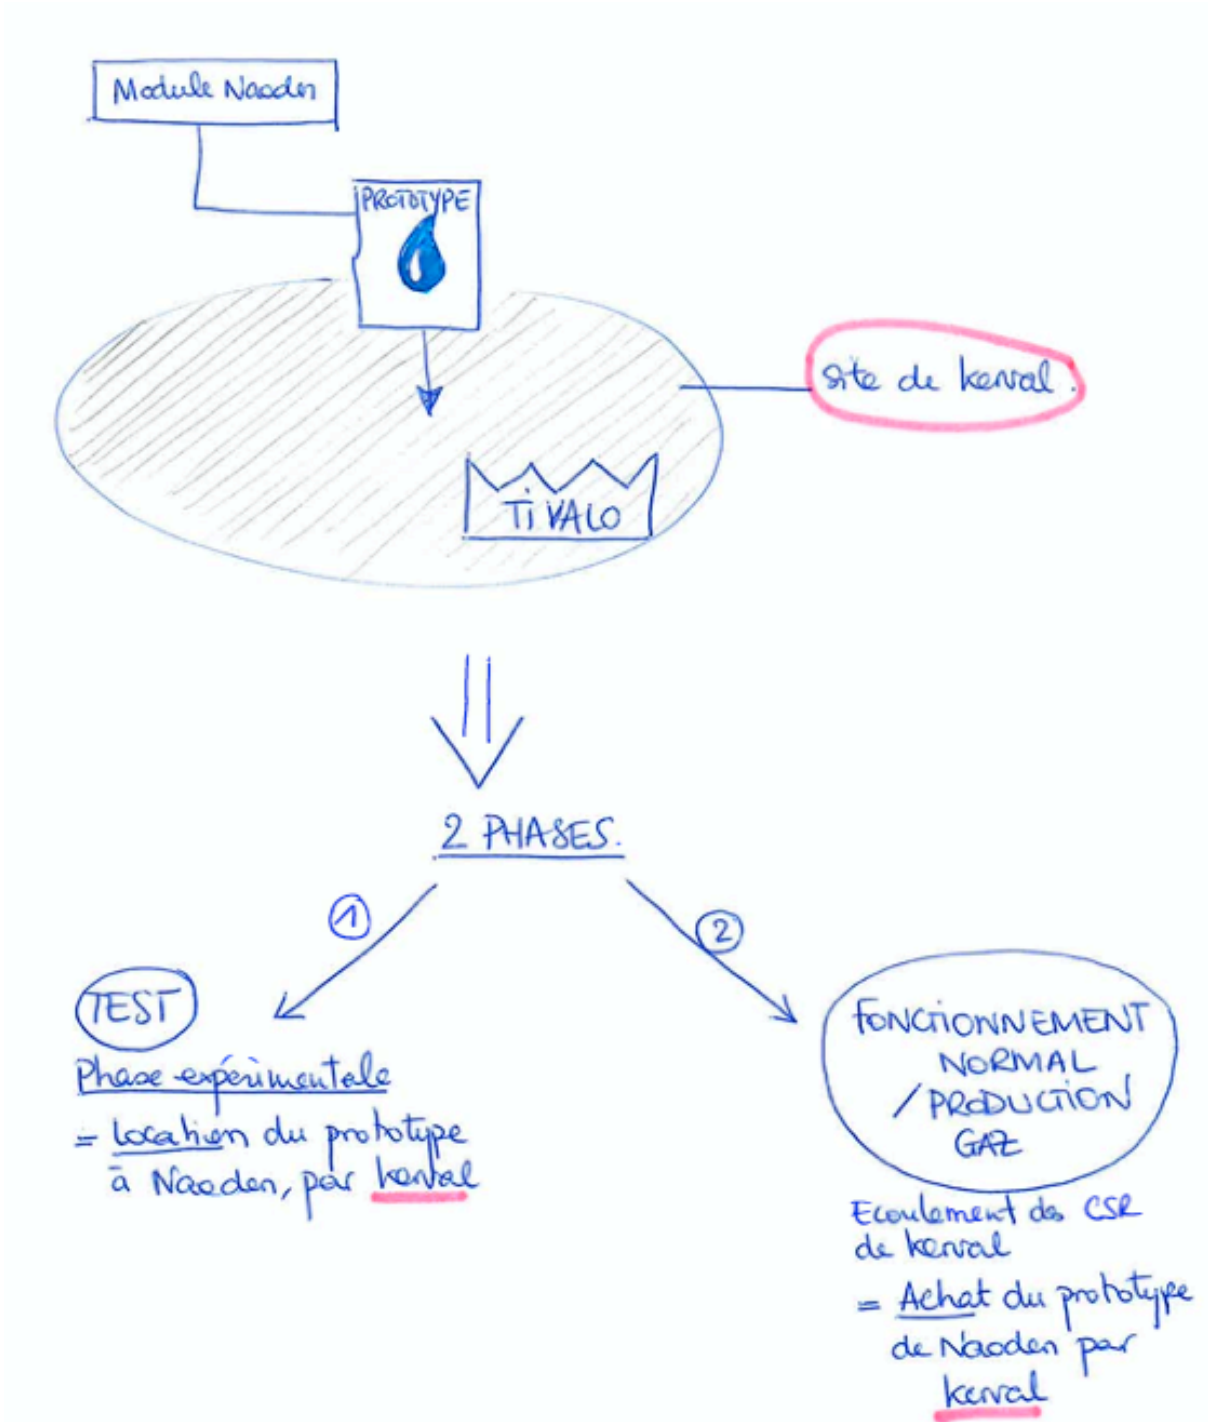 Module Naoden
PROTOTYPE
site de kerval.
Ti VALO
2 PHASES.
1
2
TEST
Phase expérimentale
= Location du prototype
à Naoden, par kerval
FONCTIONNEMENT
NORMAL
/ PRODUCTION
GAZ
Ecoulement des CSR
de kerval
= Achat du prototype
de Naoden par
kerval